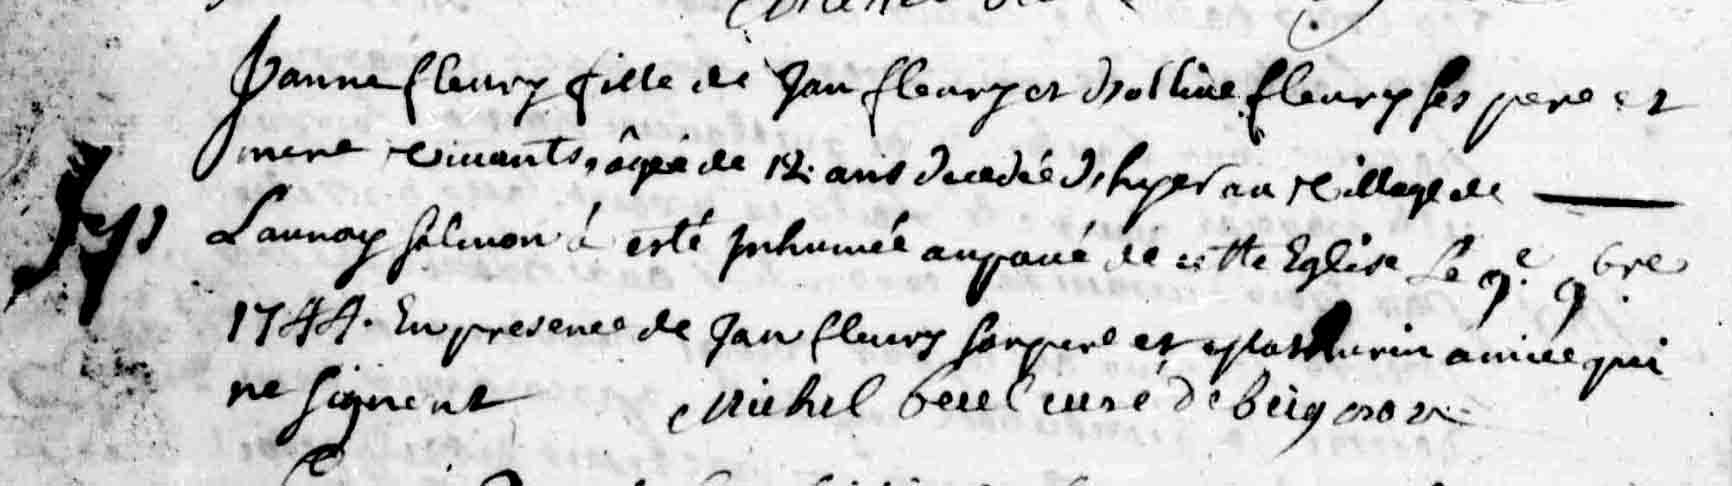 Janne fleury fille de Jan fleury et Yolline fleury ses pere et
mere vivants, âgée de 12. ans decedée d'hyer au village de
Launay salmon à esté Inhumée au pavé de cette Eglise Le 9.e 9bre
1744. En presence de Jan fleury son pere et Mathurin amice qui
ne signent Michel beul curé de bignon